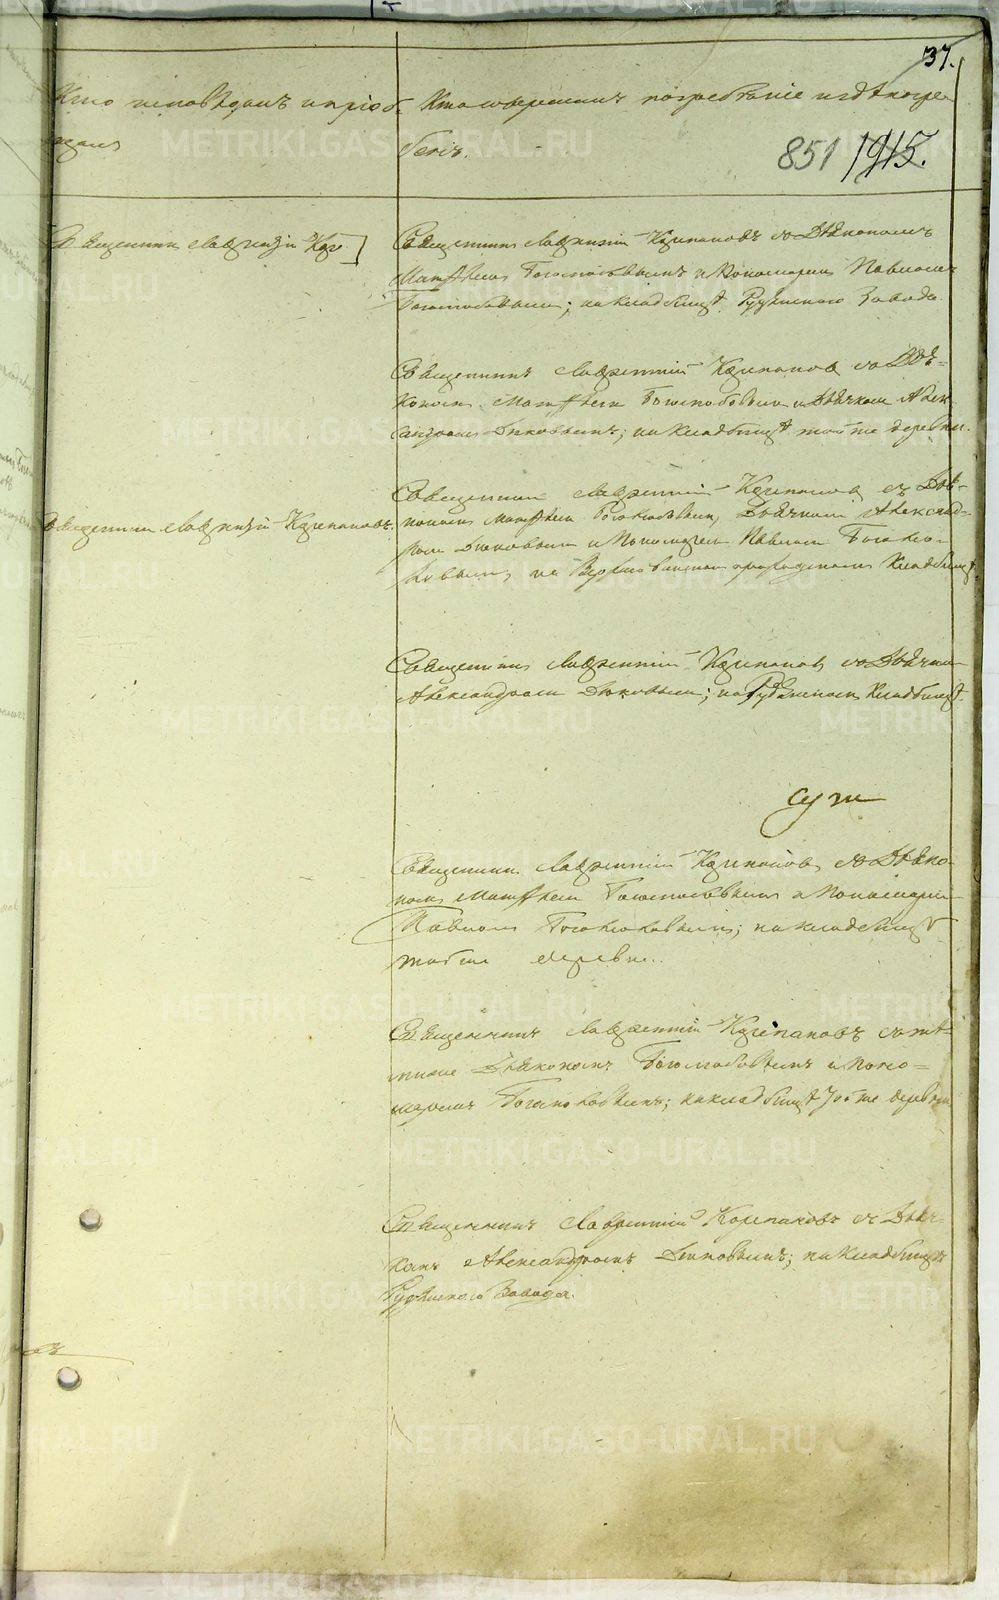 37.
Кто исповѣдалъ и пріоб-
щалъ
Кто совершилъ погребеніе и гдѣ погре-
бенъ.
851 1915.
Священникъ Лаврентій Кор
Священникъ Лаврентій Корепановъ со Діакономъ
Матѳеемъ Богословымъ и Пономаремъ Павломъ
Богословымъ; на кладбищѣ Рудянского Завода.
Священникъ Лаврентій Корепановъ со Діа-
кономъ Матѳеемъ Богословымъ и Дьячкомъ Алек-
сандромъ; на кладбищѣ той же деревни.
Священникъ Лаврентій Корепановъ
Священникъ Лаврентій Корепановъ съ Діа-
кономъ Матѳеемъ Богословымъ, Дьячкомъ Александ-
ромъ и Пономаремъ Павломъ Богосло-
вымъ, на приходскомъ кладбищѣ
Священникъ Лаврентій Корепановъ со Дьячкомъ
Александромъ; на Рудянскомъ кладбищѣ.
Священникъ Лаврентій Корепановъ со Діако-
номъ Матѳеемъ Богословымъ и Пономаремъ
Павломъ Богословымъ; на кладбищѣ
той же деревни.
Священникъ Лаврентій Корепановъ со
Діакономъ Богословымъ и Поно-
маремъ Богословымъ; на кладбищѣ той же деревни
Священникъ Лаврентій Корепановъ съ Дьяч-
комъ Александромъ; на кладбищѣ
Рудянского Завода.
METRIKI.GASO-URAL.RU